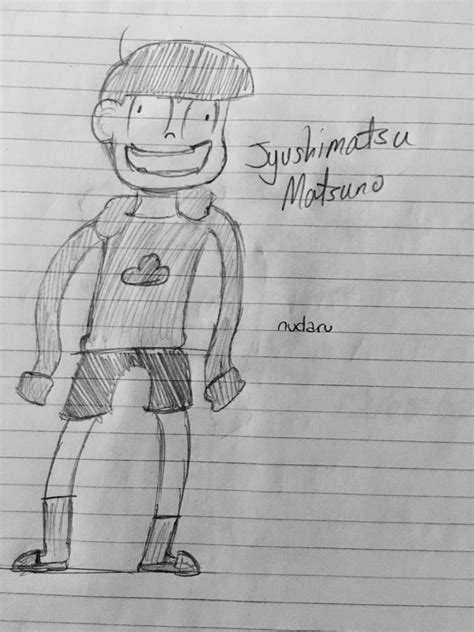 Jyushimatsu
Matsuno
nudaru